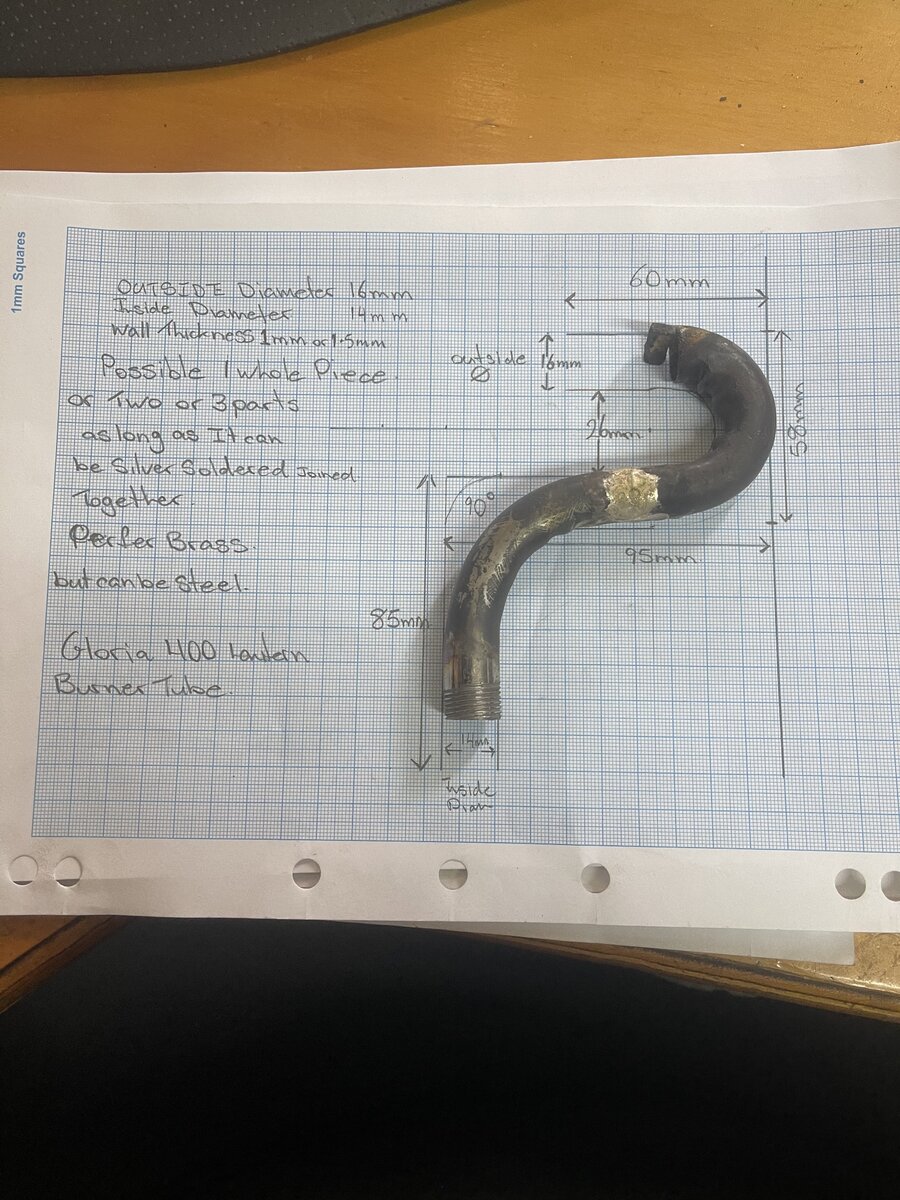 1mm Squares
OUTSIDE Diameter 16mm
Inside Diameter 14mm
Wall Thickness 1mm or 1.5mm
Possible 1 whole Piece.
or Two or 3 parts
as long as It can
be Silver Soldered Joined
Together.
Perfer Brass.
but can be Steel.
Gloria 400 Lantern
Burner Tube.
60mm
outside 16mm
Ø
26mm
58mm
90°
95mm
85mm
14mm
Inside
Diam